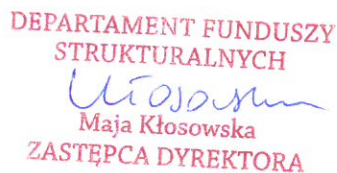 DEPARTAMENT FUNDUSZY
STRUKTURALNYCH
Maja Kłosowska
ZASTĘPCA DYREKTORA